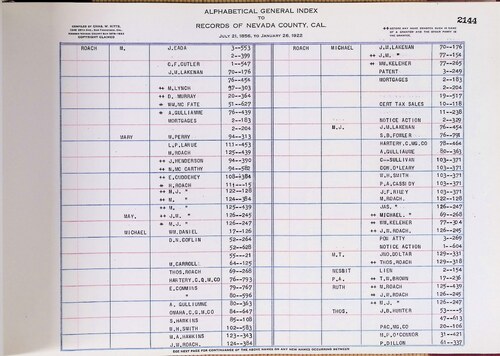 ALPHABETICAL GENERAL INDEX
TO
RECORDS OF NEVADA COUNTY, CAL.
JULY 21, 1856, TO JANUARY 28, 1922
COPYRIGHT CLAIMED
2144
ROACH M, J.EADA 3--553
2--399
C.F.CUTLER 1--547
J.M.LAKENAN 70--176
76--454
M.LYNCH 97--303
D. MURRAY 20--364
WM.MC FATE 51--627
A.GULLIANNE 76--439
MORTGAGES 2--183
2--204
MARY M.PERRY 94--313
L.P.LARUE 111--453
M.ROACH 125--439
J.HENDERSON 94--390
N.MC CARTHY 94--582
E.CUDDEHEY 108--384
H.ROACH 111--15
M.J. " 122--128
M. " 124--384
M. " 125--439
MAY, J.M. " 126--245
M.J. " 126--247
MICHAEL WM.DANIEL 17--126
D.N.GOFLIN 52--264
52--628
55--21
M.CARROLL 64--125
THOS.ROACH 69--268
HARTERY.C.G.M.CO 76--793
E.COMMINS 79--767
" 80--596
A. GULLIUNNE 80--363
OMAHA.C.G.M.CO 84--647
S.HAWKINS 85--108
W.H.SMITH 102--583
M.A.HAWKINS 123--343
J.H.ROACH 124--384
ROACH MICHAEL J.M.LAKENAN 70--176
J.M. " 77--154
WM.KELEHER 77--265
PATENT 3--249
MORTGAGES 2--183
2--204
19--517
CERT TAX SALES 10--118
11--238
NOTICE ACTION 2--329
M.J. J.M.LAKENAN 76--454
S.B.FOWLER 76--791
HARTERY.C.MG.CO 78--464
A.GULLIAUME 80--363
C--SULLIVAN 103--371
COM.O'LEARY 103--371
W.H.SMITH 103--371
P.A.CASSIDY 103--371
J.F.RILEY 103--371
M.ROACH, 122--128
JAS. " 126--247
MICHAEL. " 69--268
WM.KELEHER 77--304
J.H.ROACH. 126--245
POW ATTY 3--269
NOTICE ACTION 1--604
M.T. JNO.COLTAR 129--331
THOS.ROACH 129--318
NESBIT LIEN 2--154
P.A. T.N.BROWN 17--236
RUTH M.ROACH 125--439
J.H.ROACH 126--245
M.J. " 126--247
THOS. J.B.HUNTER 53---5
47--613
PAC.MG.CO 20--106
M.F.O'CONNOR 31--421
P.DILLON 61--337
SEE NEXT PAGE FOR CONTINUANCE OF THE ABOVE NAMES OR ANY NEW NAMES OCCURRING BETWEEN